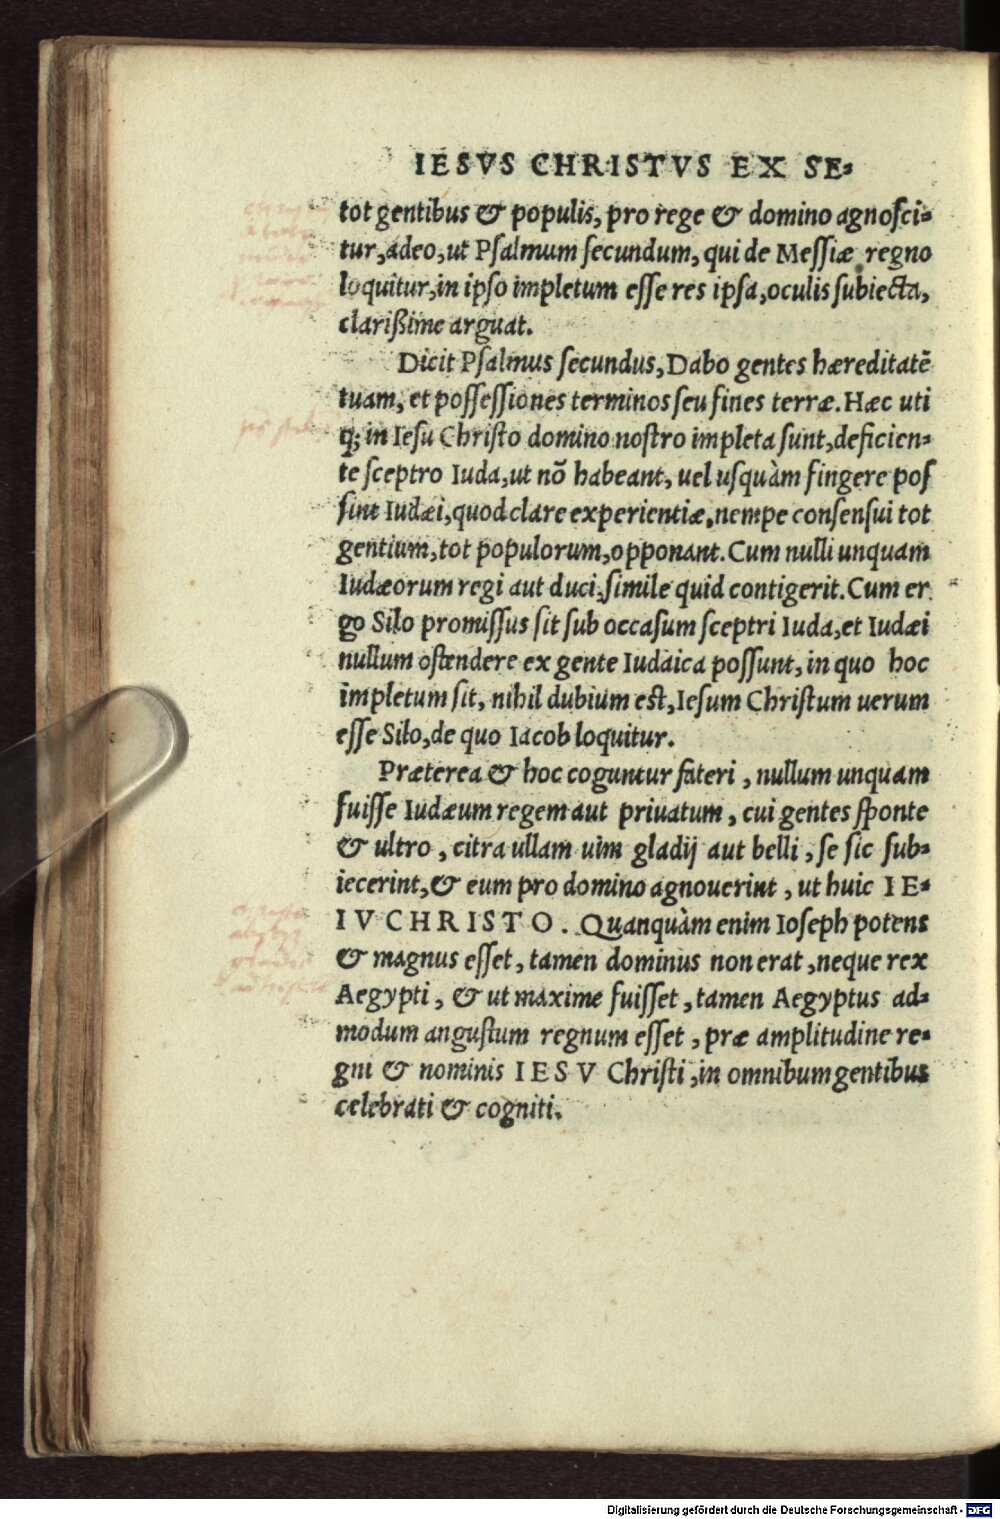 IESVS CHRISTVS EX SE⸗
tot gentibus & populis, pro rege & domino agnoſci⸗
tur, adeo, ut Pſalmum ſecundum, qui de Meſſiæ regno
loquitur, in ipſo impletum eſſe res ipſa, oculis ſubiecta,
clarißime arguat.
Dicit Pſalmus ſecundus, Dabo gentes hæreditatē
tuam, et poſſeſſiones terminos ſeu fines terræ. Hæc uti
q; in Ieſu Chriſto domino noſtro impleta ſunt, deficien⸗
te ſceptro Iuda, ut nō habeant, uel uſquàm fingere poſ
ſint Iudæi, quod clare experientiæ, nempe conſenſui tot
gentium, tot populorum, opponant. Cum nulli unquam
Iudæorum regi aut duci, ſimile quid contigerit. Cum er
go Silo promiſſus ſit ſub occaſum ſceptri Iuda, et Iudæi
nullum oſtendere ex gente Iudaica poſſunt, in quo hoc
impletum ſit, nihil dubium eſt, Ieſum Chriſtum uerum
eſſe Silo, de quo Iacob loquitur.
Præterea & hoc coguntur fateri, nullum unquam
fuiſſe Iudæum regem aut priuatum, cui gentes ſponte
& ultro, citra ullam uim gladij aut belli, ſe ſic ſub⸗
iecerint, & eum pro domino agnouerint, ut huic IE⸗
IV CHRISTO. Quanquàm enim Ioſeph potens
& magnus eſſet, tamen dominus non erat, neque rex
Aegypti, & ut maxime fuiſſet, tamen Aegyptus ad⸗
modum anguſtum regnum eſſet, præ amplitudine re⸗
gni & nominis IESV Chriſti, in omnibum gentibus
celebrati & cogniti.
Digitalisierung gefördert durch die Deutsche Forschungsgemeinschaft - DFG